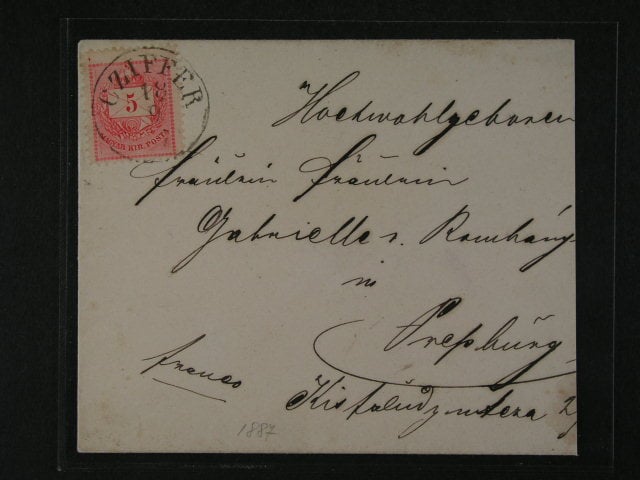 CZIFFER
18
5
MAGYAR KIR. POSTA
Hochwohlgeboren
Fräulein Fräulein
Gabrielle v. Romhány
in
Preßburg
franco
1887